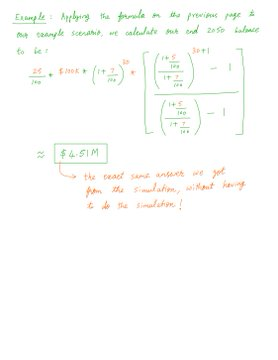 Example: Applying the formula on the previous page to
our example scenario, we calculate our end 2050 balance
to be:
25/100 * $100K * (1 + 7/100)^30 * [ ( ( (1 + 5/100) / (1 + 7/100) )^(30+1) - 1 ) / ( ( (1 + 5/100) / (1 + 7/100) ) - 1 ) ]
≈ $4.51M
→ the exact same answer we got
from the simulation, without having
to do the simulation!